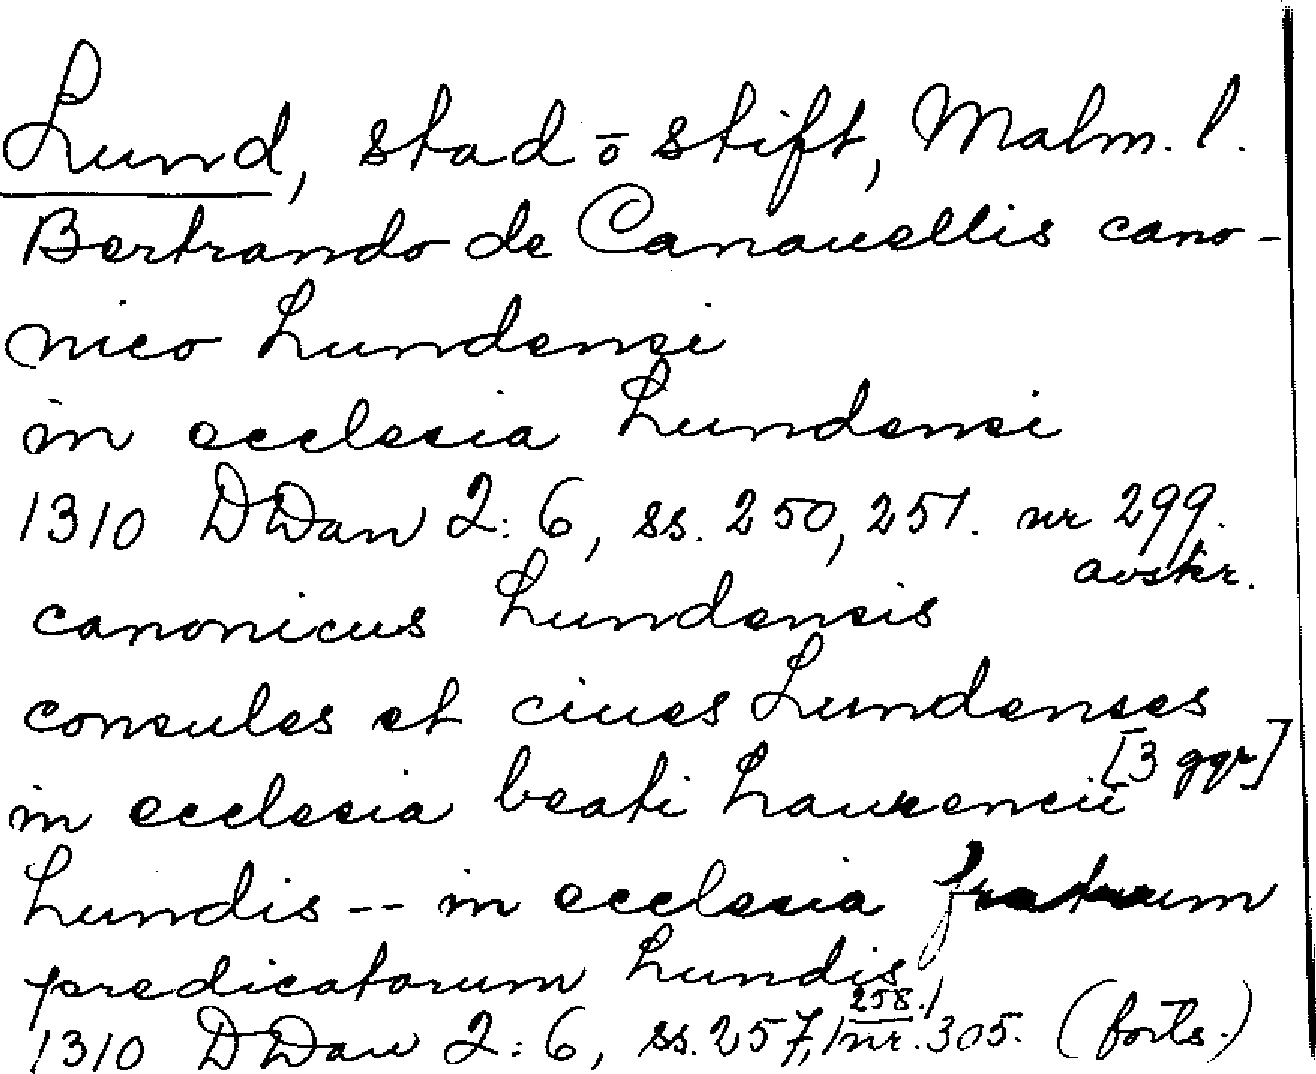 Lund, stad o stift, Malm. l.
Bertrando de Canauellis cano-
nico Lundensi
in ecclesia Lundensi
1310 DDan 2:6, ss. 250, 251. nr 299.
avskr.
canonicus Lundensis
consules et ciues Lundenses
[3 ggr]
in ecclesia beati Laurencii
Lundis -- in ecclesia fratrum
predicatorum Lundis
1310 DDan 2:6, ss. 257, 258. nr. 305. (forts.)